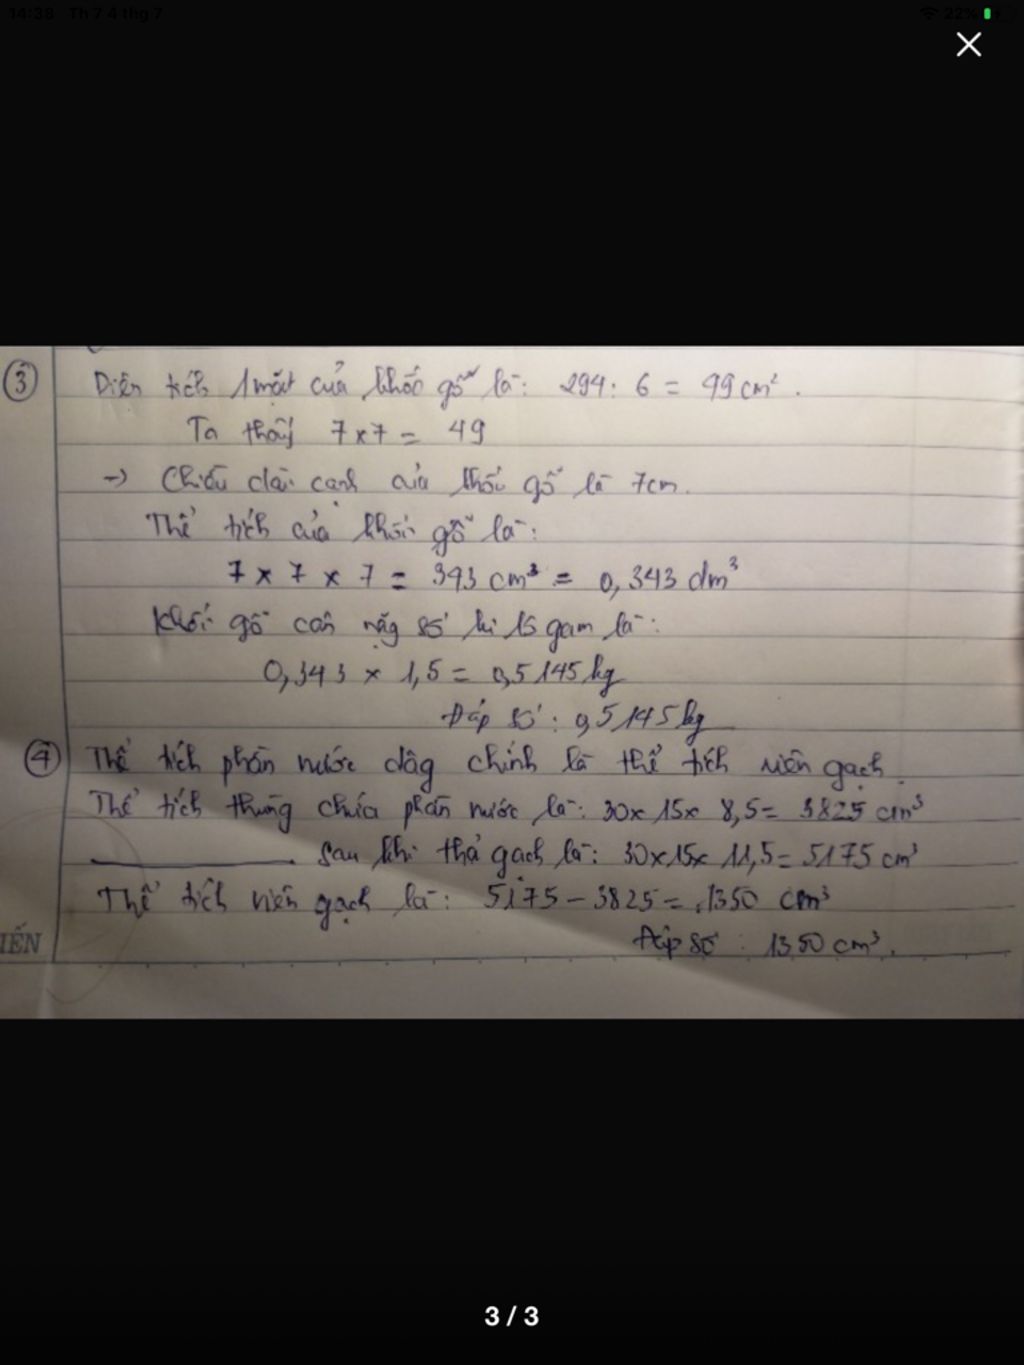 14:38 Th 7 4 thg 7 22%
③ Diện tích 1 mặt của khốc gỗ là: 294 : 6 = 49 cm².
Ta thấy 7 x 7 = 49
→ Chiều dài cạnh của khối gỗ là 7cm.
Thể tích của khối gỗ là:
7 x 7 x 7 = 343 cm³ = 0,343 dm³
Khối gỗ cân nặg số ki lô gam là:
0,343 x 1,5 = 0,5145 kg
Đáp số : 0,5145 kg
④ Thể tích phần nước dâg chính là thể tích viên gạch.
Thể tích thùng chứa phần nước là: 30 x 15 x 8,5 = 3825 cm³
sau khi thả gạch là: 30 x 15 x 11,5 = 5175 cm³
Thể tích viên gạch là: 5175 - 3825 = 1350 cm³
Đáp số : 1350 cm³.
IẾN
3 / 3